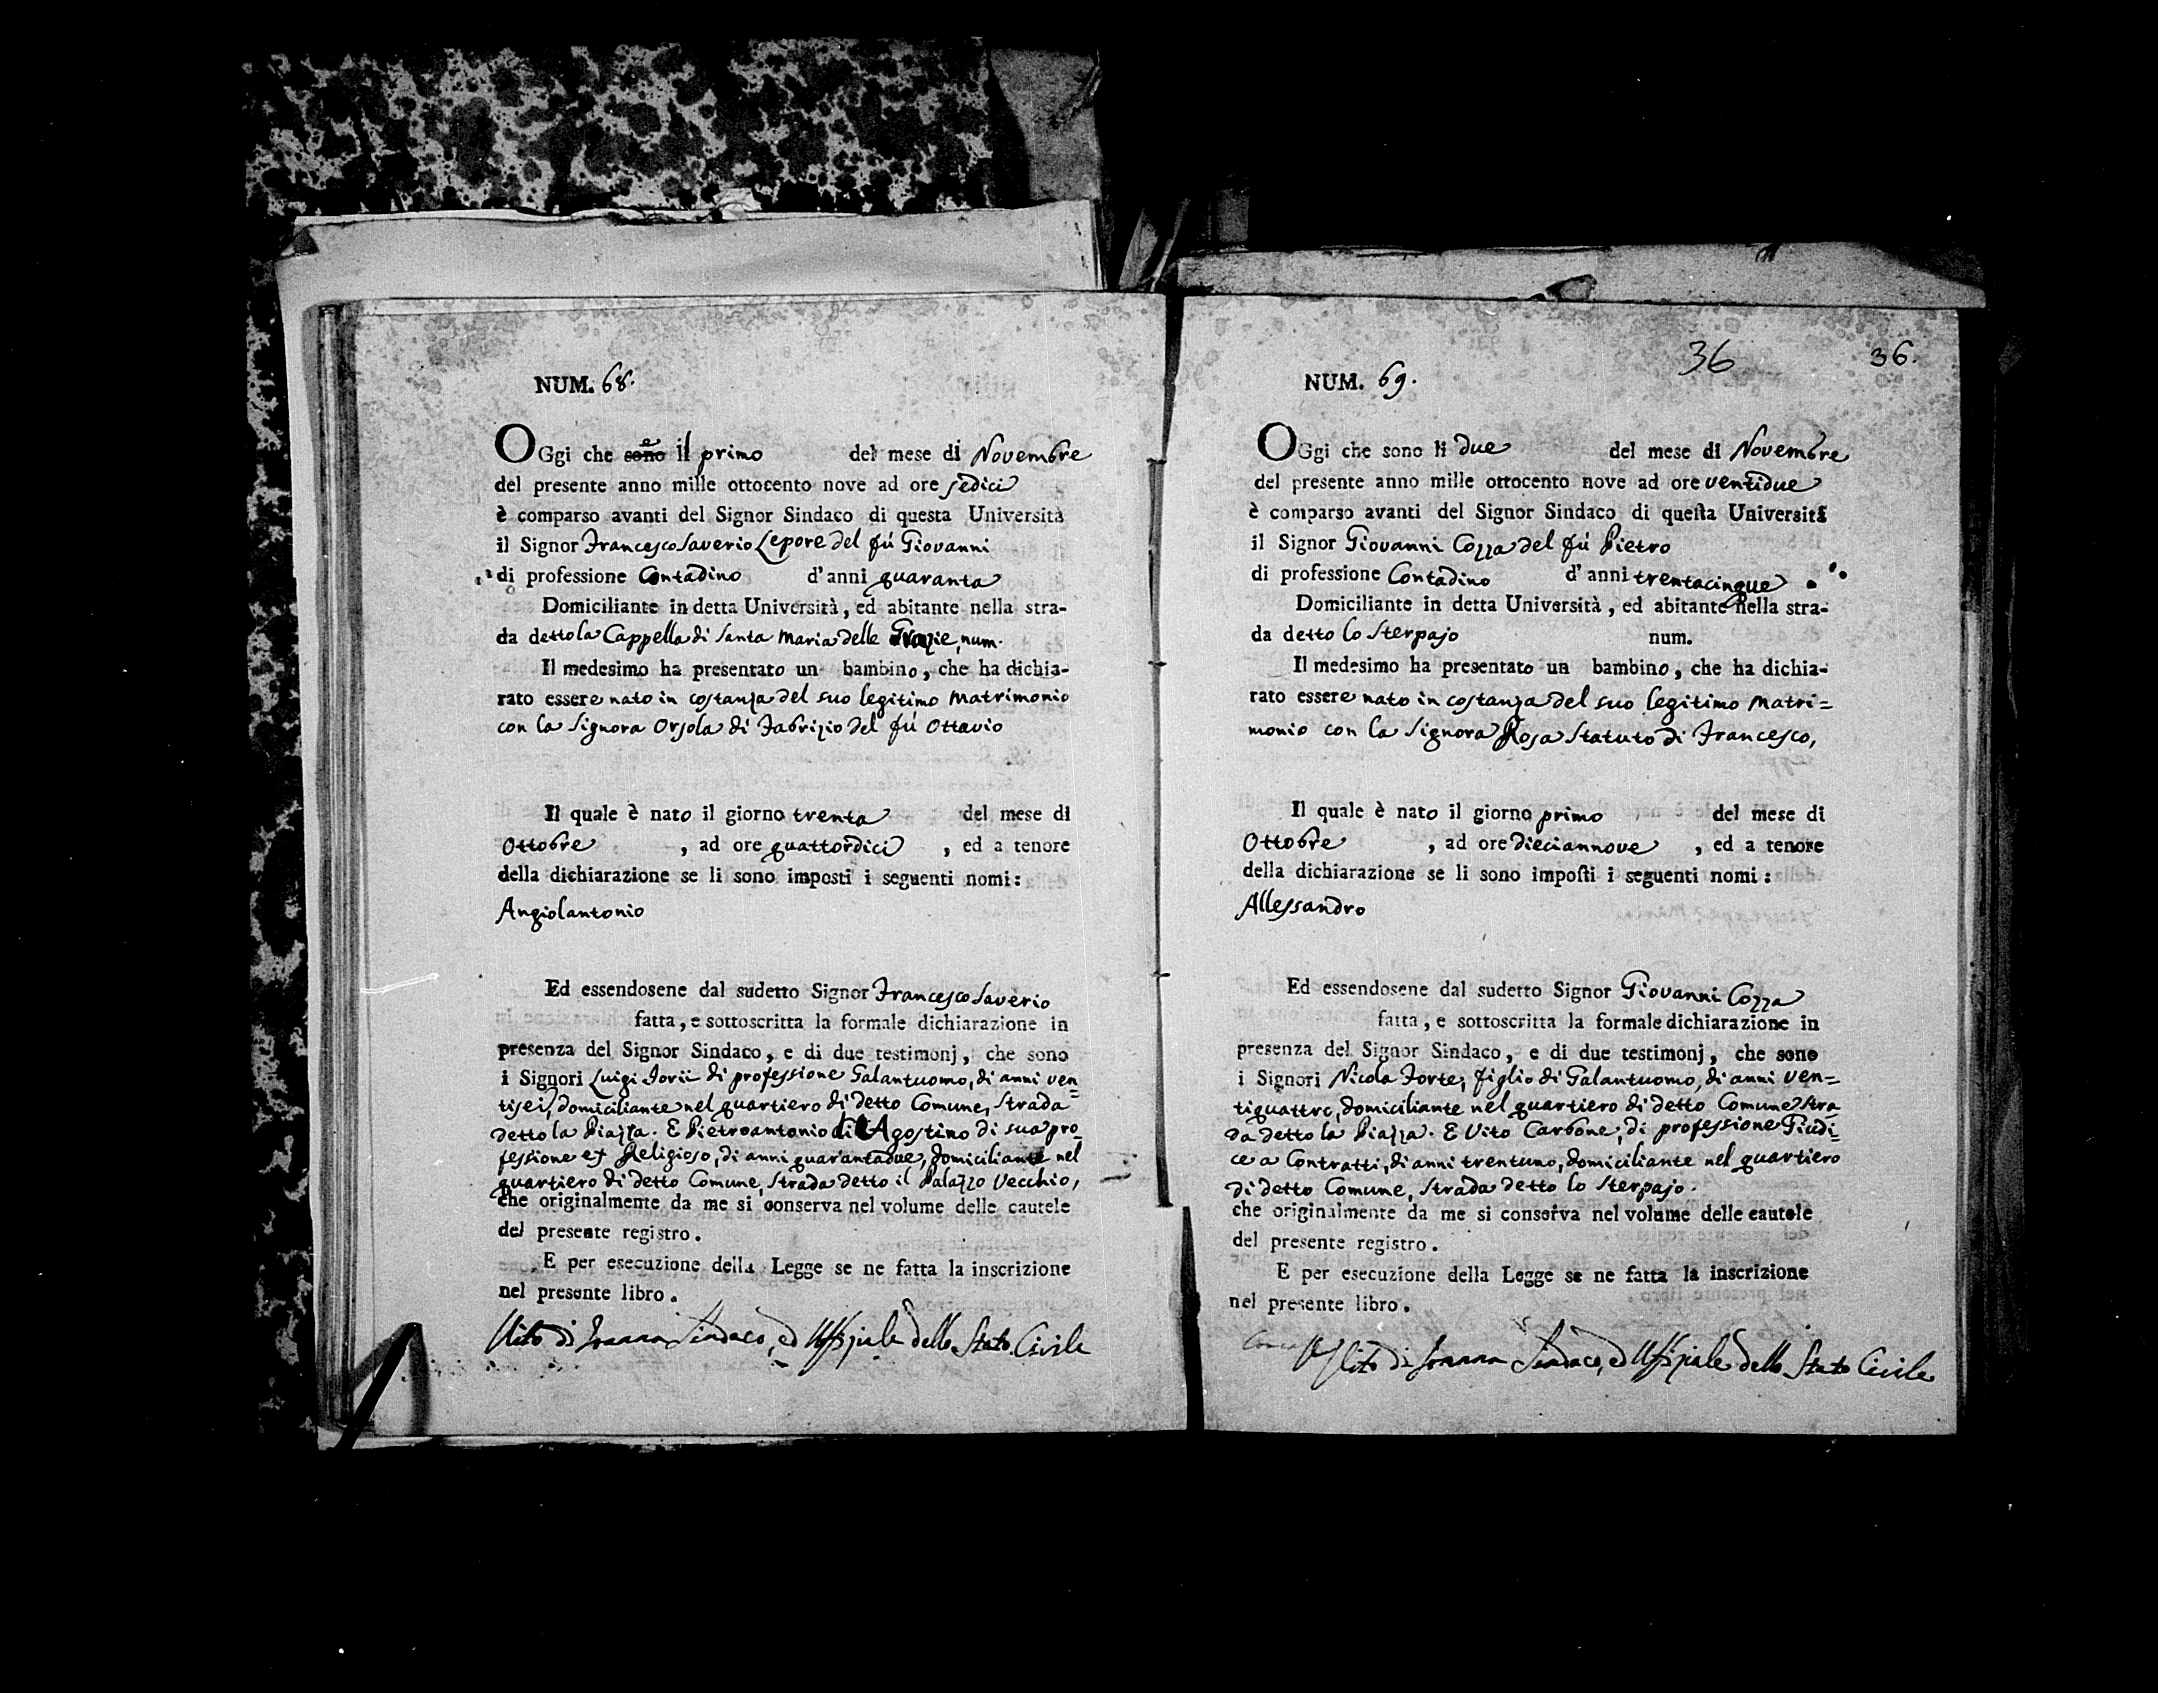 NUM. 68.
OGgi che sono è il primo del mese di Novembre
del presente anno mille ottocento nove ad ore sedici
è comparso avanti del Signor Sindaco di questa Università
il Signor Francesco Saverio Lepore del fù Giovanni
di professione Contadino d'anni quaranta
Domiciliante in detta Università, ed abitante nella stra-
da detto la Cappella di Santa Maria delle Grazie, num.
Il medesimo ha presentato un bambino, che ha dichia-
rato essere nato in costanza del suo legitimo Matrimonio
con la Signora Orsola di Fabrizio del fù Ottavio
Il quale è nato il giorno trenta del mese di
Ottobre, ad ore quattordici, ed a tenore
della dichiarazione se li sono imposti i seguenti nomi:
Angiolantonio
Ed essendosene dal sudetto Signor Francesco Saverio
fatta, e sottoscritta la formale dichiarazione in
presenza del Signor Sindaco, e di due testimonj, che sono
i Signori Luigi Iorii di professione Galantuomo, di anni ven=
tisei, domiciliante nel quartiero di detto Comune, Strada
detto la Piazza. E Pietroantonio di Agostino di sua pro=
fessione ex Religioso, di anni quarantadue, domiciliante nel
quartiero di detto Comune, Strada detto il Palazzo Vecchio,
che originalmente da me si conserva nel volume delle cautele
del presente registro.
E per esecuzione della Legge se ne fatta la inscrizione
nel presente libro.
Vito di Ioanna Sindaco, ed Uffiziale dello Stato Civile
36 36.
NUM. 69.
OGgi che sono li due del mese di Novembre
del presente anno mille ottocento nove ad ore ventidue
è comparso avanti del Signor Sindaco di questa Università
il Signor Giovanni Cozza del fù Pietro
di professione Contadino d'anni trentacinque
Domiciliante in detta Università, ed abitante nella stra-
da detto lo Sterpajo num.
Il medesimo ha presentato un bambino, che ha dichia-
rato essere nato in costanza del suo legitimo Matri=
monio con la Signora Rosa Statuto di Francesco,
Il quale è nato il giorno primo del mese di
Ottobre, ad ore dieciannove, ed a tenore
della dichiarazione se li sono imposti i seguenti nomi:
Allessandro
Ed essendosene dal sudetto Signor Giovanni Cozza
fatta, e sottoscritta la formale dichiarazione in
presenza del Signor Sindaco, e di due testimonj, che sono
i Signori Nicola Forte, figlio di Galantuomo, di anni ven=
tiquattro, domiciliante nel quartiero di detto Comune Stra
da detto la Piazza. E Vito Carbone, di professione Giudi=
ce a Contratti, di anni trentuno, domiciliante nel quartiero
di detto Comune, Strada detto lo Sterpajo.
che originalmente da me si conserva nel volume delle cautele
del presente registro.
E per esecuzione della Legge se ne fatta la inscrizione
nel presente libro.
Vito di Ioanna Sindaco, ed Uffiziale dello Stato Civile